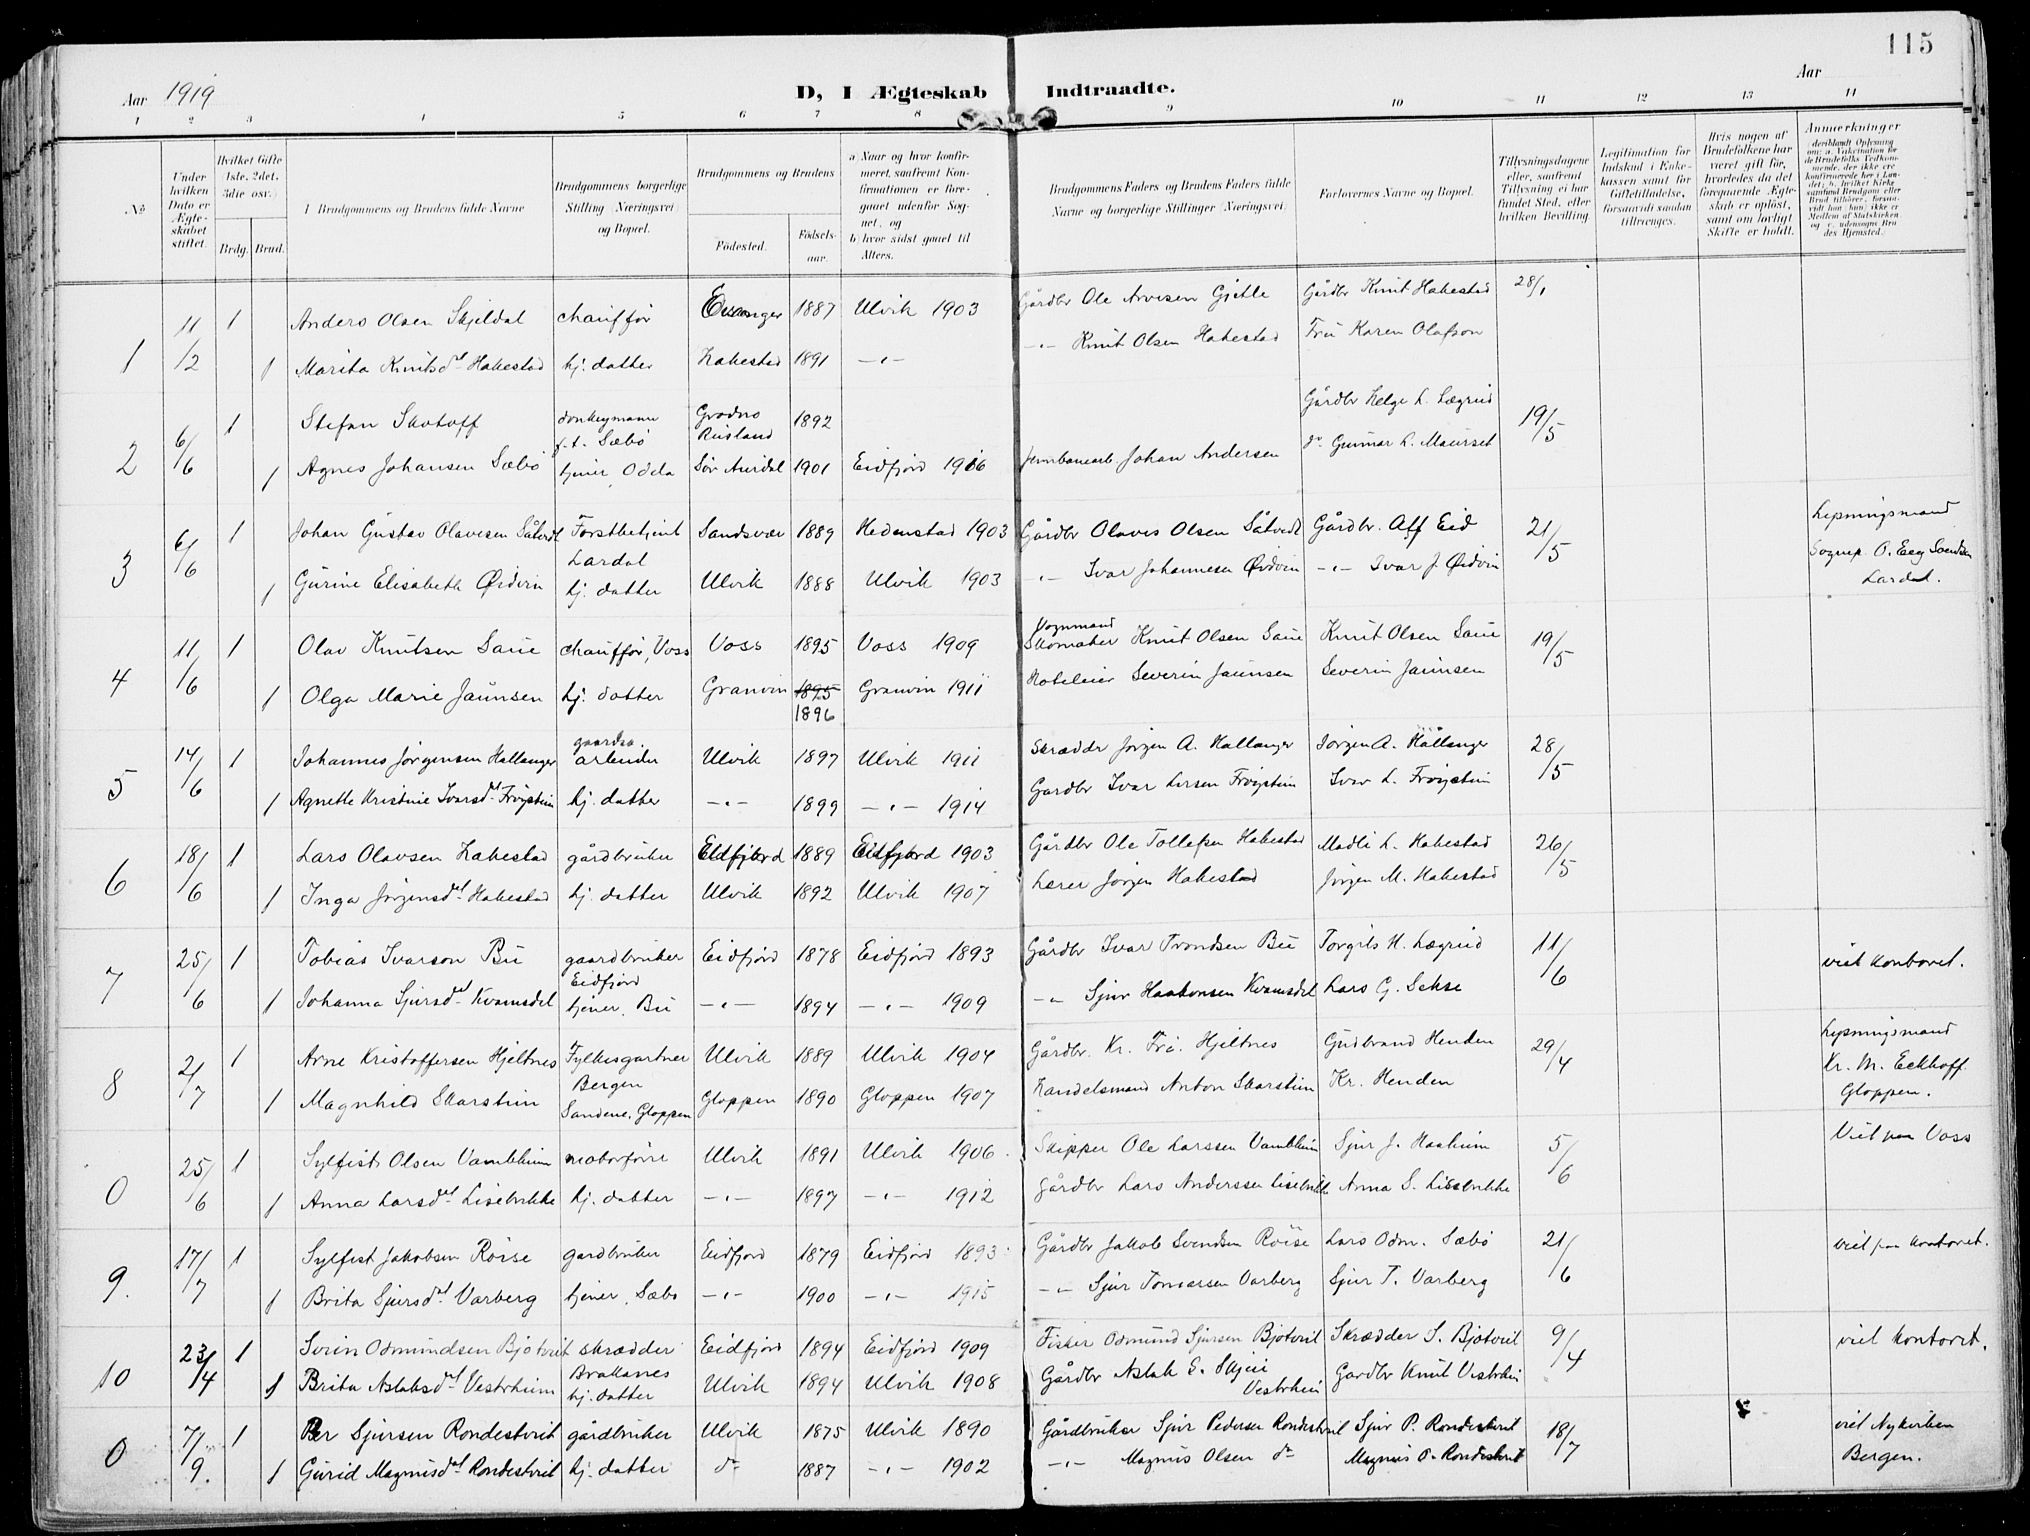 115
Aar 1919
D, I Ægteskab Indtraadte.
Aar
1 2 3 4 5 6 7 8 9 10 11 12 13 14
No
Under hvilken Dato er Ægteskabet stiftet.
Hvilket Gifte 1ste, 2det, 3die osv.
Brdg. Brud.
Brudgommens og Brudens fulde Navne
Brudgommens borgerlige Stilling (Næringsvei) og Bopæl.
Brudgommens og Brudens
Fødested.
Fødselsaar.
a) Naar og hvor konfirmeret, saafremt Konfirmationen er foregaaet udenfor Sognet, og
b) hvor sidst gaaet til Alters.
Brudgommens Faders og Brudens Faders fulde Navne og borgerlige Stillinger (Næringsvei)
Forlovernes Navne og Bopæl.
Tillysningsdagene eller, saafremt Tillysning ei har fundet Sted, efter hvilken Bevilling.
Legitimation for Indskud i Enkekassen samt for Giftetilladelse, forsaavidt saadan tiltrænges.
Hvis nogen af Brudefolkene har været gift før, hvorledes da det foregaaende Ægteskab er opløst, samt om lovligt Skifte er holdt.
Anmerkninger
(deriblandt Oplysning om: a. Vakcination for de Brudefolks Vedkommende, der ikke ere konfirmerede her i Landet; b. hvilket Kirkesamfund Brudgom eller Brud tilhører, forsaavidt han (hun) ikke er Medlem af Statskirken, og c. udensogns Brudes Hjemsted.)
1 11/2 1 Anders Olsen Skjeldal chauffør Evanger 1887 Ulvik 1903 Gårdbr Ole Arvesen Gjelle Gårdbr Knut Hakestad 28/1
1 Marita Knutsdt Hakestad hj. datter Hakestad 1891 -"- -"- Knut Olsen Hakestad Fru Karen Olafson
2 6/6 1 Stefan Skotoff donkeymann f.t. Sæbø Grodno Rusland 1892 Gårdbr Helge L. Lægreid 19/5
1 Agnes Johansen Sæbø tjener, Odda Sør Aurdal 1901 Eidfjord 1916 jernbanearb. Johan Andersen do Gunnar L. Maurset
3 6/6 1 Johan Gustav Olavesen Såtvedt Forstbetjent Lardal Sandsvær 1889 Hedenstad 1903 Gårdbr Olaves Olsen Såtvedt Gårdbr. Alf Eid 21/5 Lysningsmand
1 Gurine Elisabeth Øidvin hj. datter Ulvik 1888 Ulvik 1903 -"- Ivar Johannesen Øidvin -"- Ivar J. Øidvin Sognep. O. Eeg Svendsen Lardal.
4 11/6 1 Olav Knutsen Saue chauffør, Voss Voss 1895 Voss 1909 Vognmand Skomaker Knut Olsen Saue Knut Olsen Saue 19/5
1 Olga Marie Jaunsen hj. datter Granvin 1895 1896 Granvin 1911 Hoteleier Severin Jaunsen Severin Jaunsen
5 14/6 1 Johannes Jørgensen Hallanger gaardsarbeider Ulvik 1897 Ulvik 1911 Skrædder Jørgen A. Hallanger Jørgen A. Hallanger 28/5
1 Agnethe Kristine Ivarsdt Frøystein hj. datter -"- 1899 -"- 1914 Gardbr Ivar Larsen Frøystein Ivar L. Frøystein
6 18/6 1 Lars Olavsen Hakestad gårdbruker Eidfjord 1889 Eidfjord 1903 Gårdbr Ole Tollefsen Hakestad Madli L. Hakestad 26/5
1 Inga Jørgensdt Hakestad hj. datter Ulvik 1892 Ulvik 1907 Lærer Jørgen Hakestad Jørgen M. Hakestad
7 25/6 1 Tobias Ivarson Bu gaardbruker Eidfjord Eidfjord 1878 Eidfjord 1893 Gårdbr Ivar Trondsen Bu Torgils H. Lægreid 11/6 viet kontoret.
1 Johanna Sjursdt Kvamsdal tjener, Bu -"- 1894 -"- 1909 -"- Sjur Haakonsen Kvamsdal Lars G. Sekse
8 2/7 1 Arne Kristoffersen Hjeltnes Fylkesgartner Bergen Ulvik 1889 Ulvik 1904 Gårdbr. Kr. Fr. Hjeltnes Gudbrand Henden 29/4 Lysningsmand
1 Magnhild Skarstein Sandene, Gloppen Gloppen 1890 Gloppen 1907 Handelsmand Anton Skarstein Kr. Henden Kr. M. Eckhoff. Gloppen.
0 25/6 1 Sylfest Olsen Vambheim motorfører Ulvik 1891 Ulvik 1906 Skipper Ole Larssen Vambheim Sjur J. Haaheim 5/6 Viet paa Voss
1 Anna Larsdt Lisebrekke hj. datter -"- 1897 -"- 1912 Gårdbr Lars Anderssen Lisebrekke Anna S. Lisebrekke
9. 17/7 1 Sylfest Jakobsen Røise gardbruker Eidfjord 1879 Eidfjord 1893 Gårdbr Jakob Svendsen Røise Lars Odm. Sæbø 21/6 viet paa kontoret.
1 Brita Sjursdt Varberg tjener, Sæbø -"- 1900 -"- 1915 -"- Sjur Tomassen Varberg Sjur T. Varberg
10 23/4 1 Svein Odmundsen Bjotveit skrædder Brakanes Eidfjord 1894 Eidfjord 1909 Fisker Odmund Sjursen Bjotveit Skrædder S. Bjotveit 9/4 viet kontoret.
1 Brita Aslaksdt Vestrheim hj. datter Ulvik 1894 Ulvik 1908 Gårdbr Aslak E. Skjeie Vestrheim Gardbr Knut Vestrheim
0 7/9. 1 Per Sjursen Rondestveit gårdbruker Ulvik 1875 Ulvik 1890 Gårdbruker Sjur Pedersen Rondestveit Sjur P. Rondestveit 18/7 viet Nykirken
1 Gurid Magnusdt Rondestveit hj. datter do 1887 -"- 1902 -"- Magnus Olsen do Magnus O. Rondestveit Bergen.